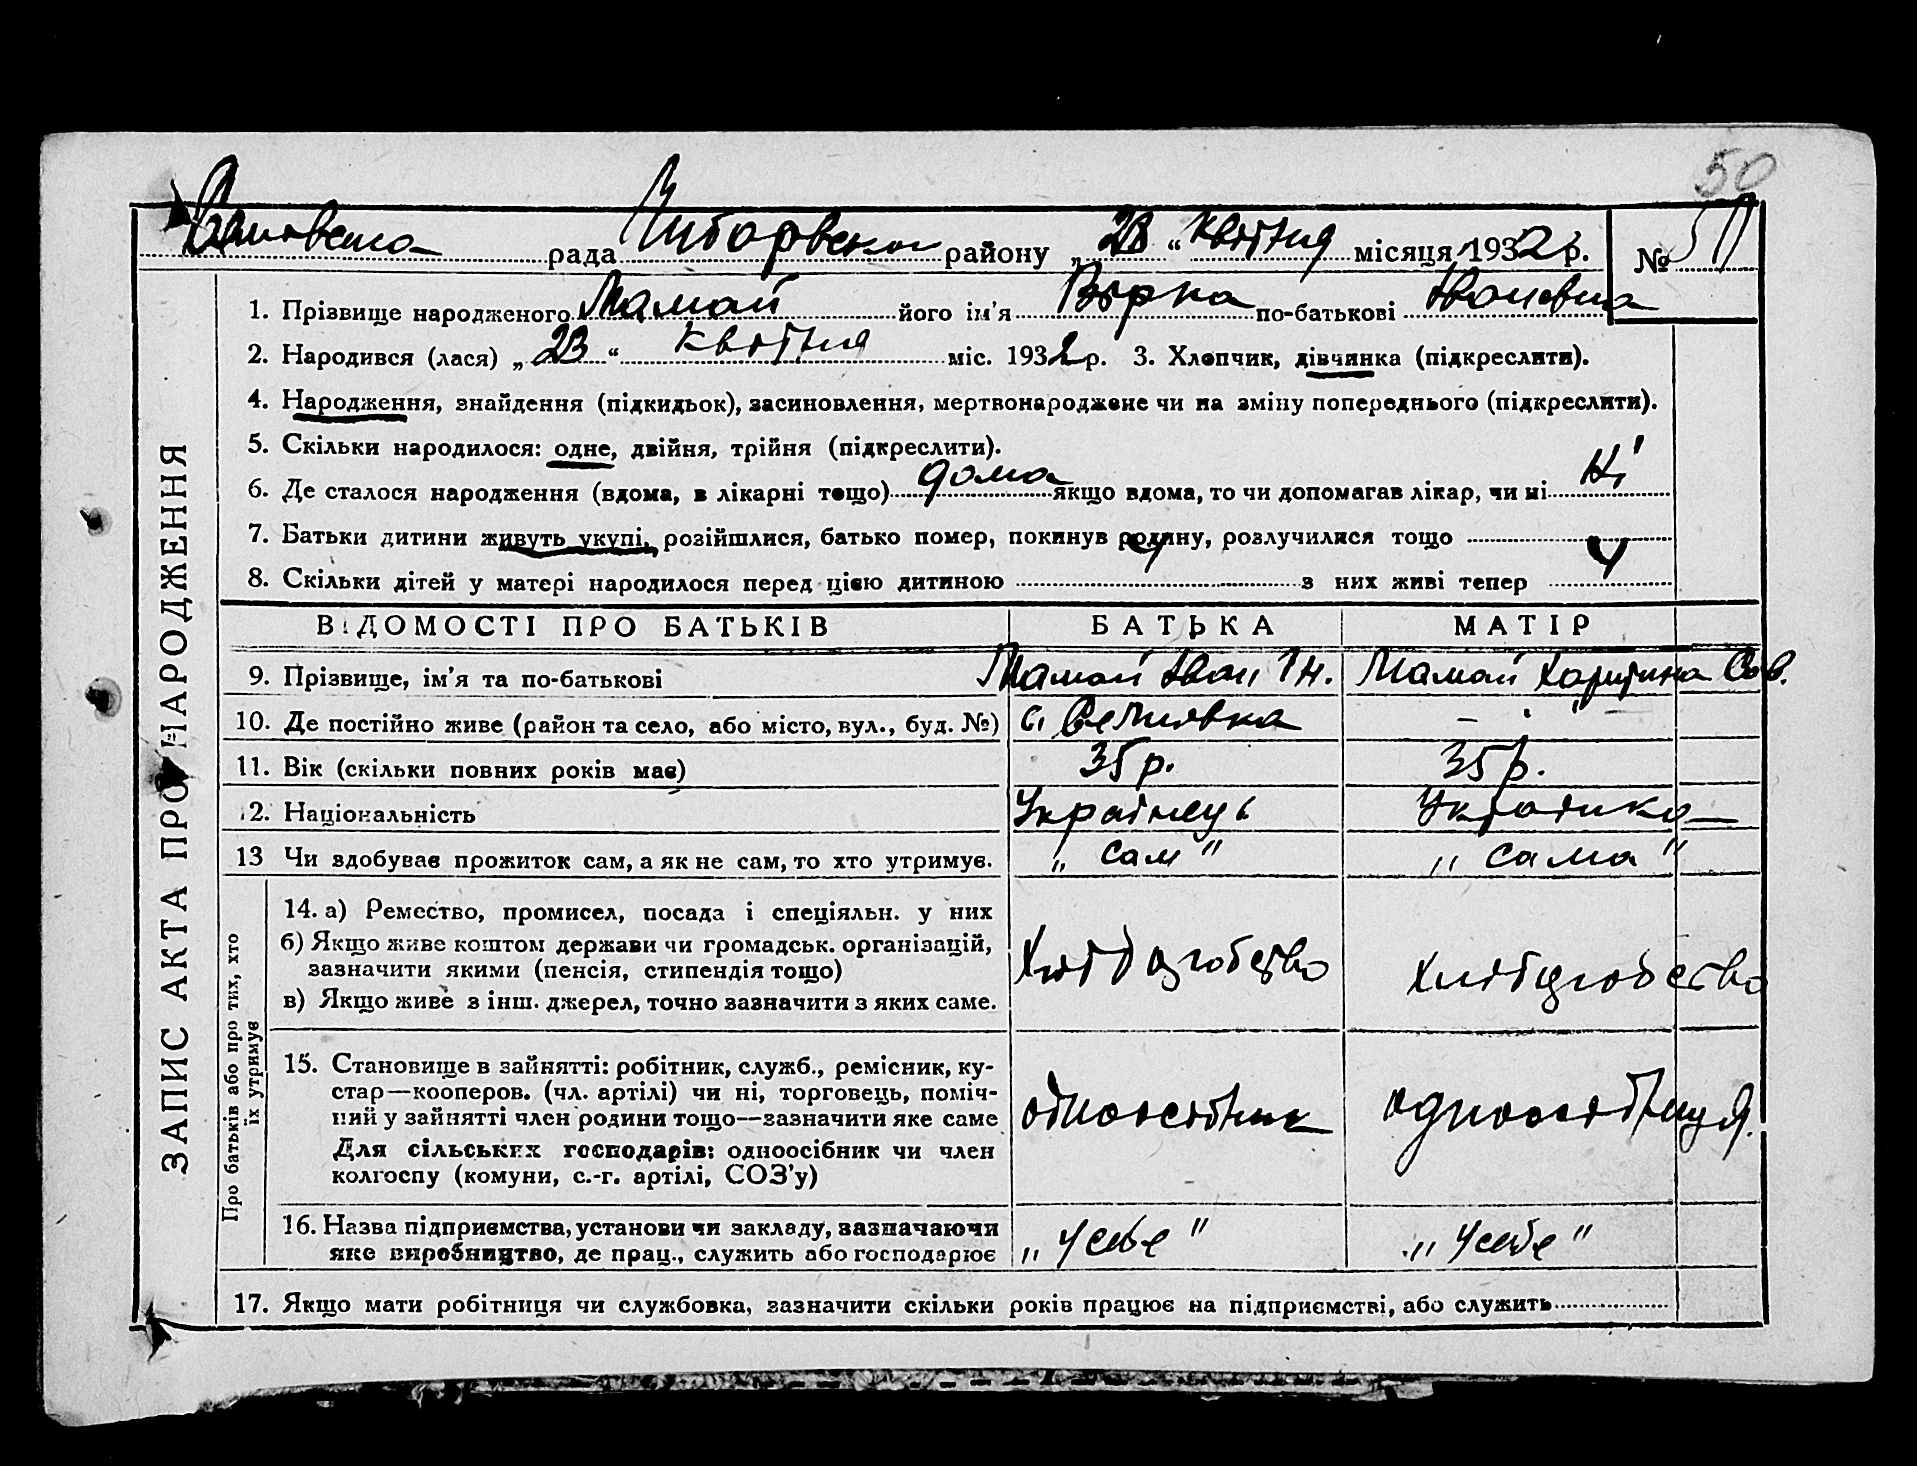 50
рада району „ 23 “ квітня місяця 1932 р. № 50
1. Прізвище народженого Мамай його ім’я по-батькові Івановна
2. Народився (лася) „ 23 “ квітня міс. 1932 р. 3. Хлопчик, дівчинка (підкреслити).
4. Народження, знайдення (підкидьок), засиновлення, мертвонароджене чи на зміну попереднього (підкреслити).
5. Скільки народилося: одне, двійня, трійня (підкреслити).
6. Де сталося народження (вдома, в лікарні тощо) дома якщо вдома, то чи допомагав лікар, чи ні Ні
7. Батьки дитини живуть укупі, розійшлися, батько помер, покинув родину, розлучилися тощо
8. Скільки дітей у матері народилося перед цією дитиною 4 з них живі тепер 4
ЗАПИС АКТА ПРО НАРОДЖЕННЯ
ВІДОМОСТІ ПРО БАТЬКІВ БАТЬКА МАТІР
9. Прізвище, ім’я та по-батькові Мамай Іван Гн. Мамай Харитина Сав.
10. Де постійно живе (район та село, або місто, вул., буд. №) с. – " –
11. Вік (скільки повних років має) 35 р. 35 р.
12. Національність Українець Українка
13 Чи здобуває прожиток сам, а як не сам, то хто утримує. „ сам " „ сама "
Про батьків або про тих, хто
їх утримує
14. а) Ремество, промисел, посада і спеціяльн. у них
б) Якщо живе коштом держави чи громадськ. організацій,
зазначити якими (пенсія, стипендія тощо) Хліборобство хліборобство
в) Якщо живе з інш. джерел, точно зазначити з яких саме.
15. Становище в зайнятті: робітник, служб., ремісник, ку-
стар—кооперов. (чл. артілі) чи ні, торговець, поміч-
ний у зайнятті член родини тощо—зазначити яке саме одноосібник
Для сільських господарів: одноосібник чи член
колгоспу (комуни, с.-г. артілі, СОЗ’у)
16. Назва підприємства, установи чи закладу, зазначаючи
яке виробництво, де прац., служить або господарює „ у себе " „ у себе "
17. Якщо мати робітниця чи службовка, зазначити скільки років працює на підприємстві, або служить